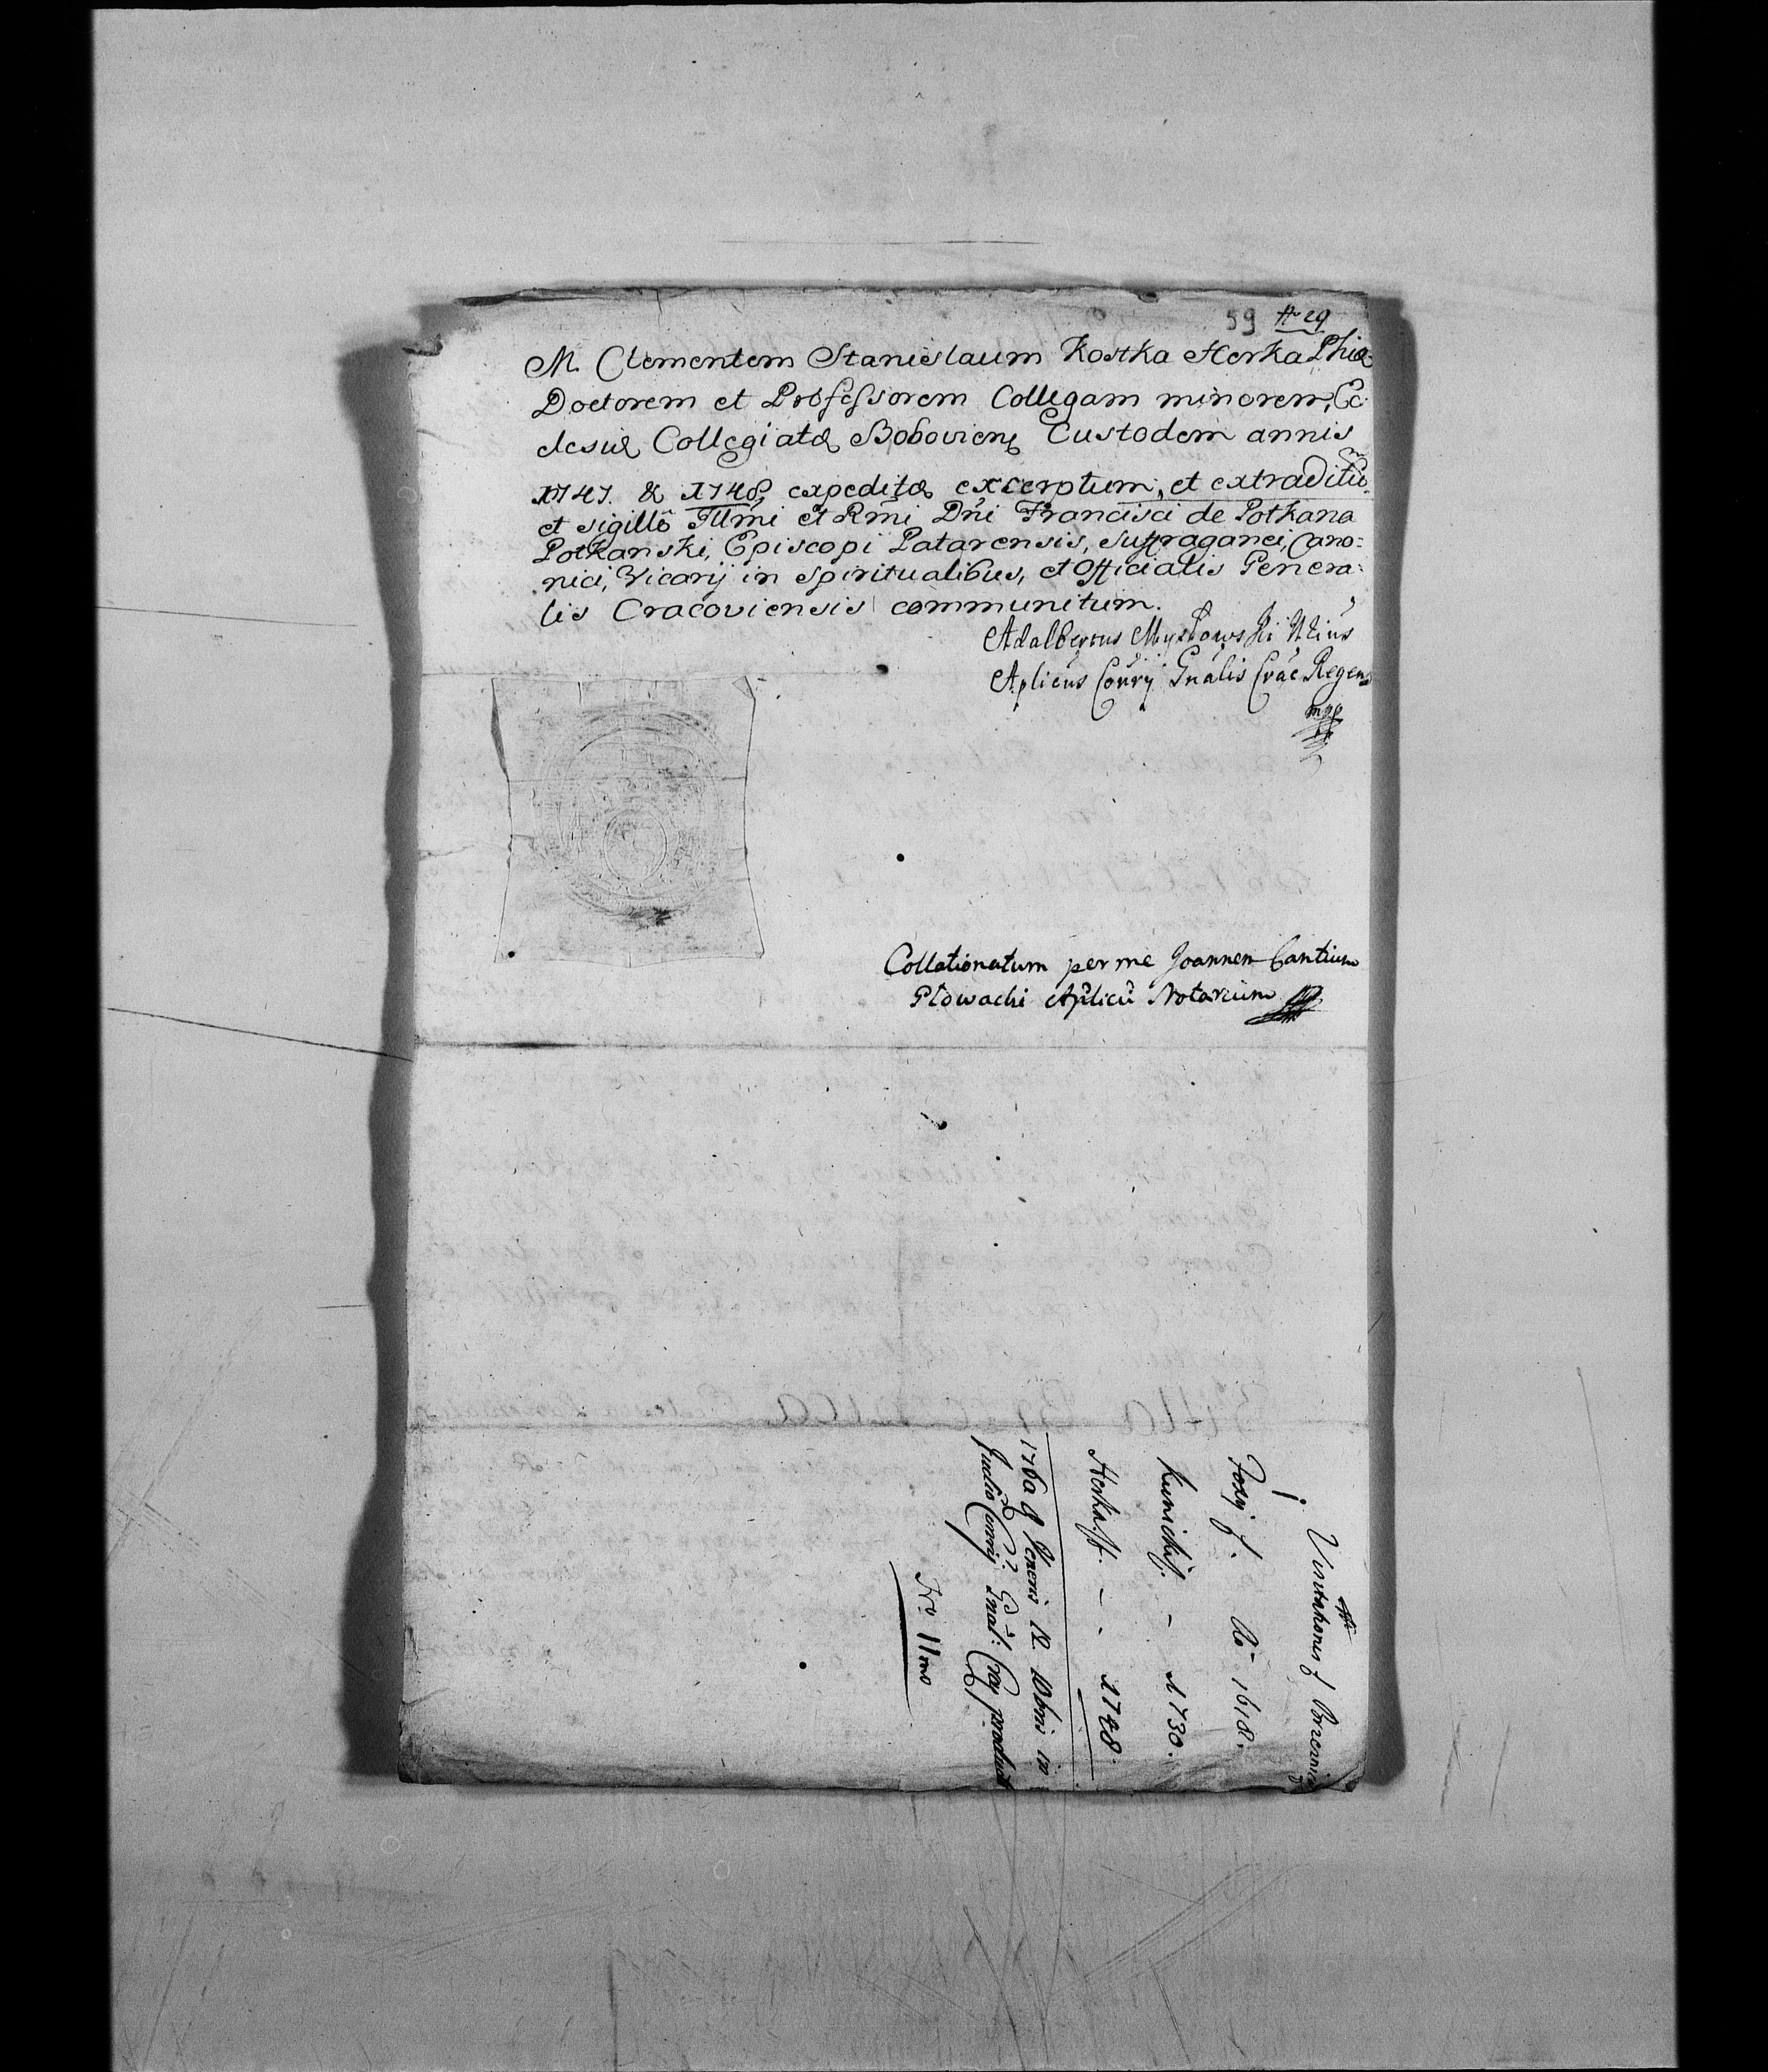 59
M. Clementem Stanislaum Kostka Herka Phiæ
Doctorem et Professorem Collegam minorem, Ec
clesiæ Collegiatæ Boboviens Custodem annis
1747. & 1748, expeditæ excerptum, et extraditũ
et sigillô Illmi et Rmi Dni Francisci de Potkana
Potkanski, Episcopi Patarensis, Suffraganei, Cano:
nici, Vicarij in Spiritualibus, et Officialis Genera:
lis Cracoviensis communitum.
Adalbertus Mystowski
Aplicus Conrij Gnalis Crac Regens
mpp
Collationatum per me Joannem Cantium
Plowachi Aplicũ Notarium
Visitationis
Foxij f. Ao 1618.
Kunicki f. - 1730.
Herka ff. - - 1748.
Veneris 12 Xbris in
Judio Conrij Gnal: Crac product
No 11mo